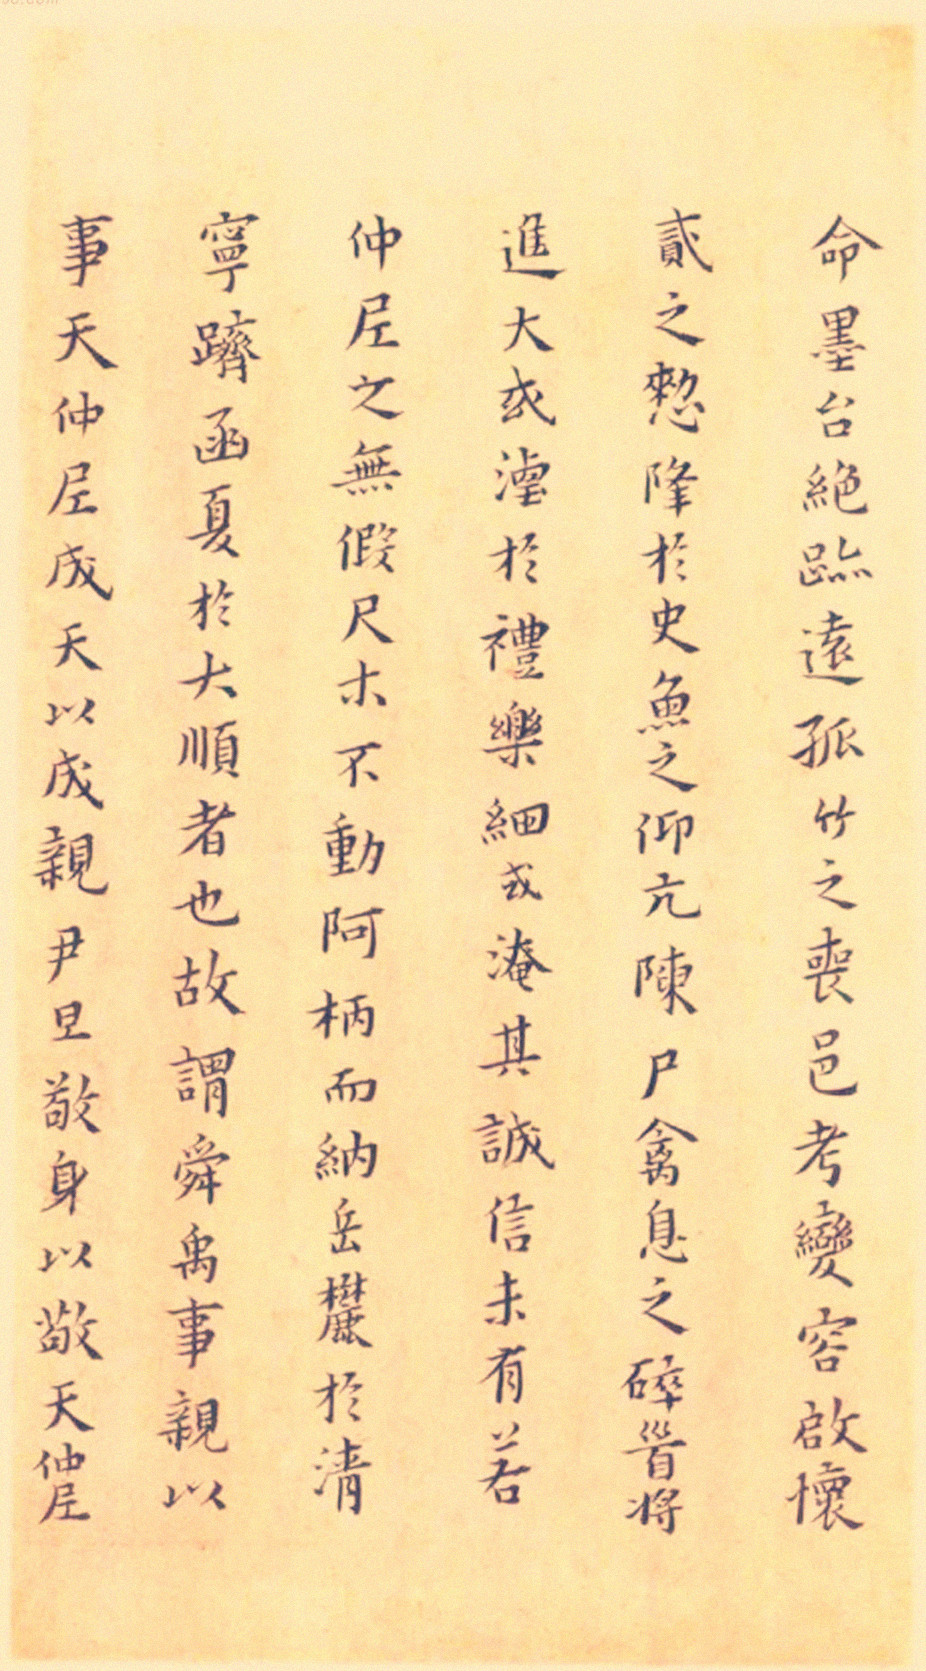 命墨台絶跡遠孤竹之喪邑考變容啟懷
貳之愸隆於史魚之仰亢陳尸禽息之碎首將
進大或湮於禮樂細或淹其誠信未有若
仲尼之無假尺木不動阿柄而納岳麓於清
寧躋函夏於大順者也故謂舜禹事親以
事天仲尼成天以成親尹旦敬身以敬天仲尼